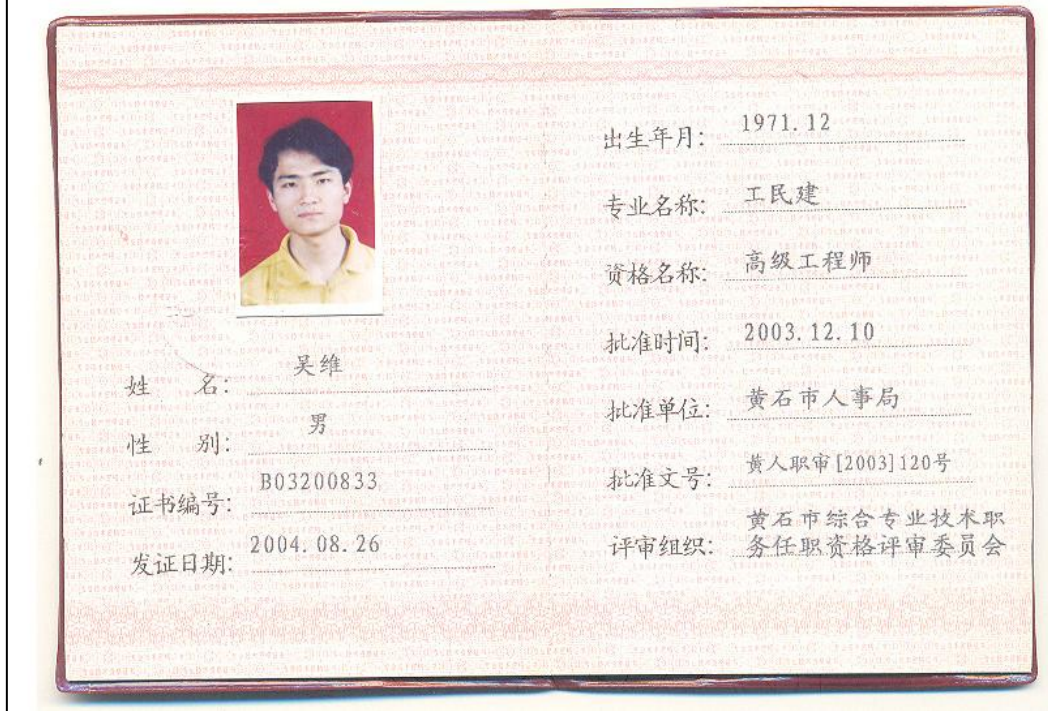 姓名: 吴维
性别: 男
证书编号: B03200833
发证日期: 2004.08.26
出生年月: 1971.12
专业名称: 工民建
资格名称: 高级工程师
批准时间: 2003.12.10
批准单位: 黄石市人事局
批准文号: 黄人职审[2003]120号
评审组织: 黄石市综合专业技术职
务任职资格评审委员会